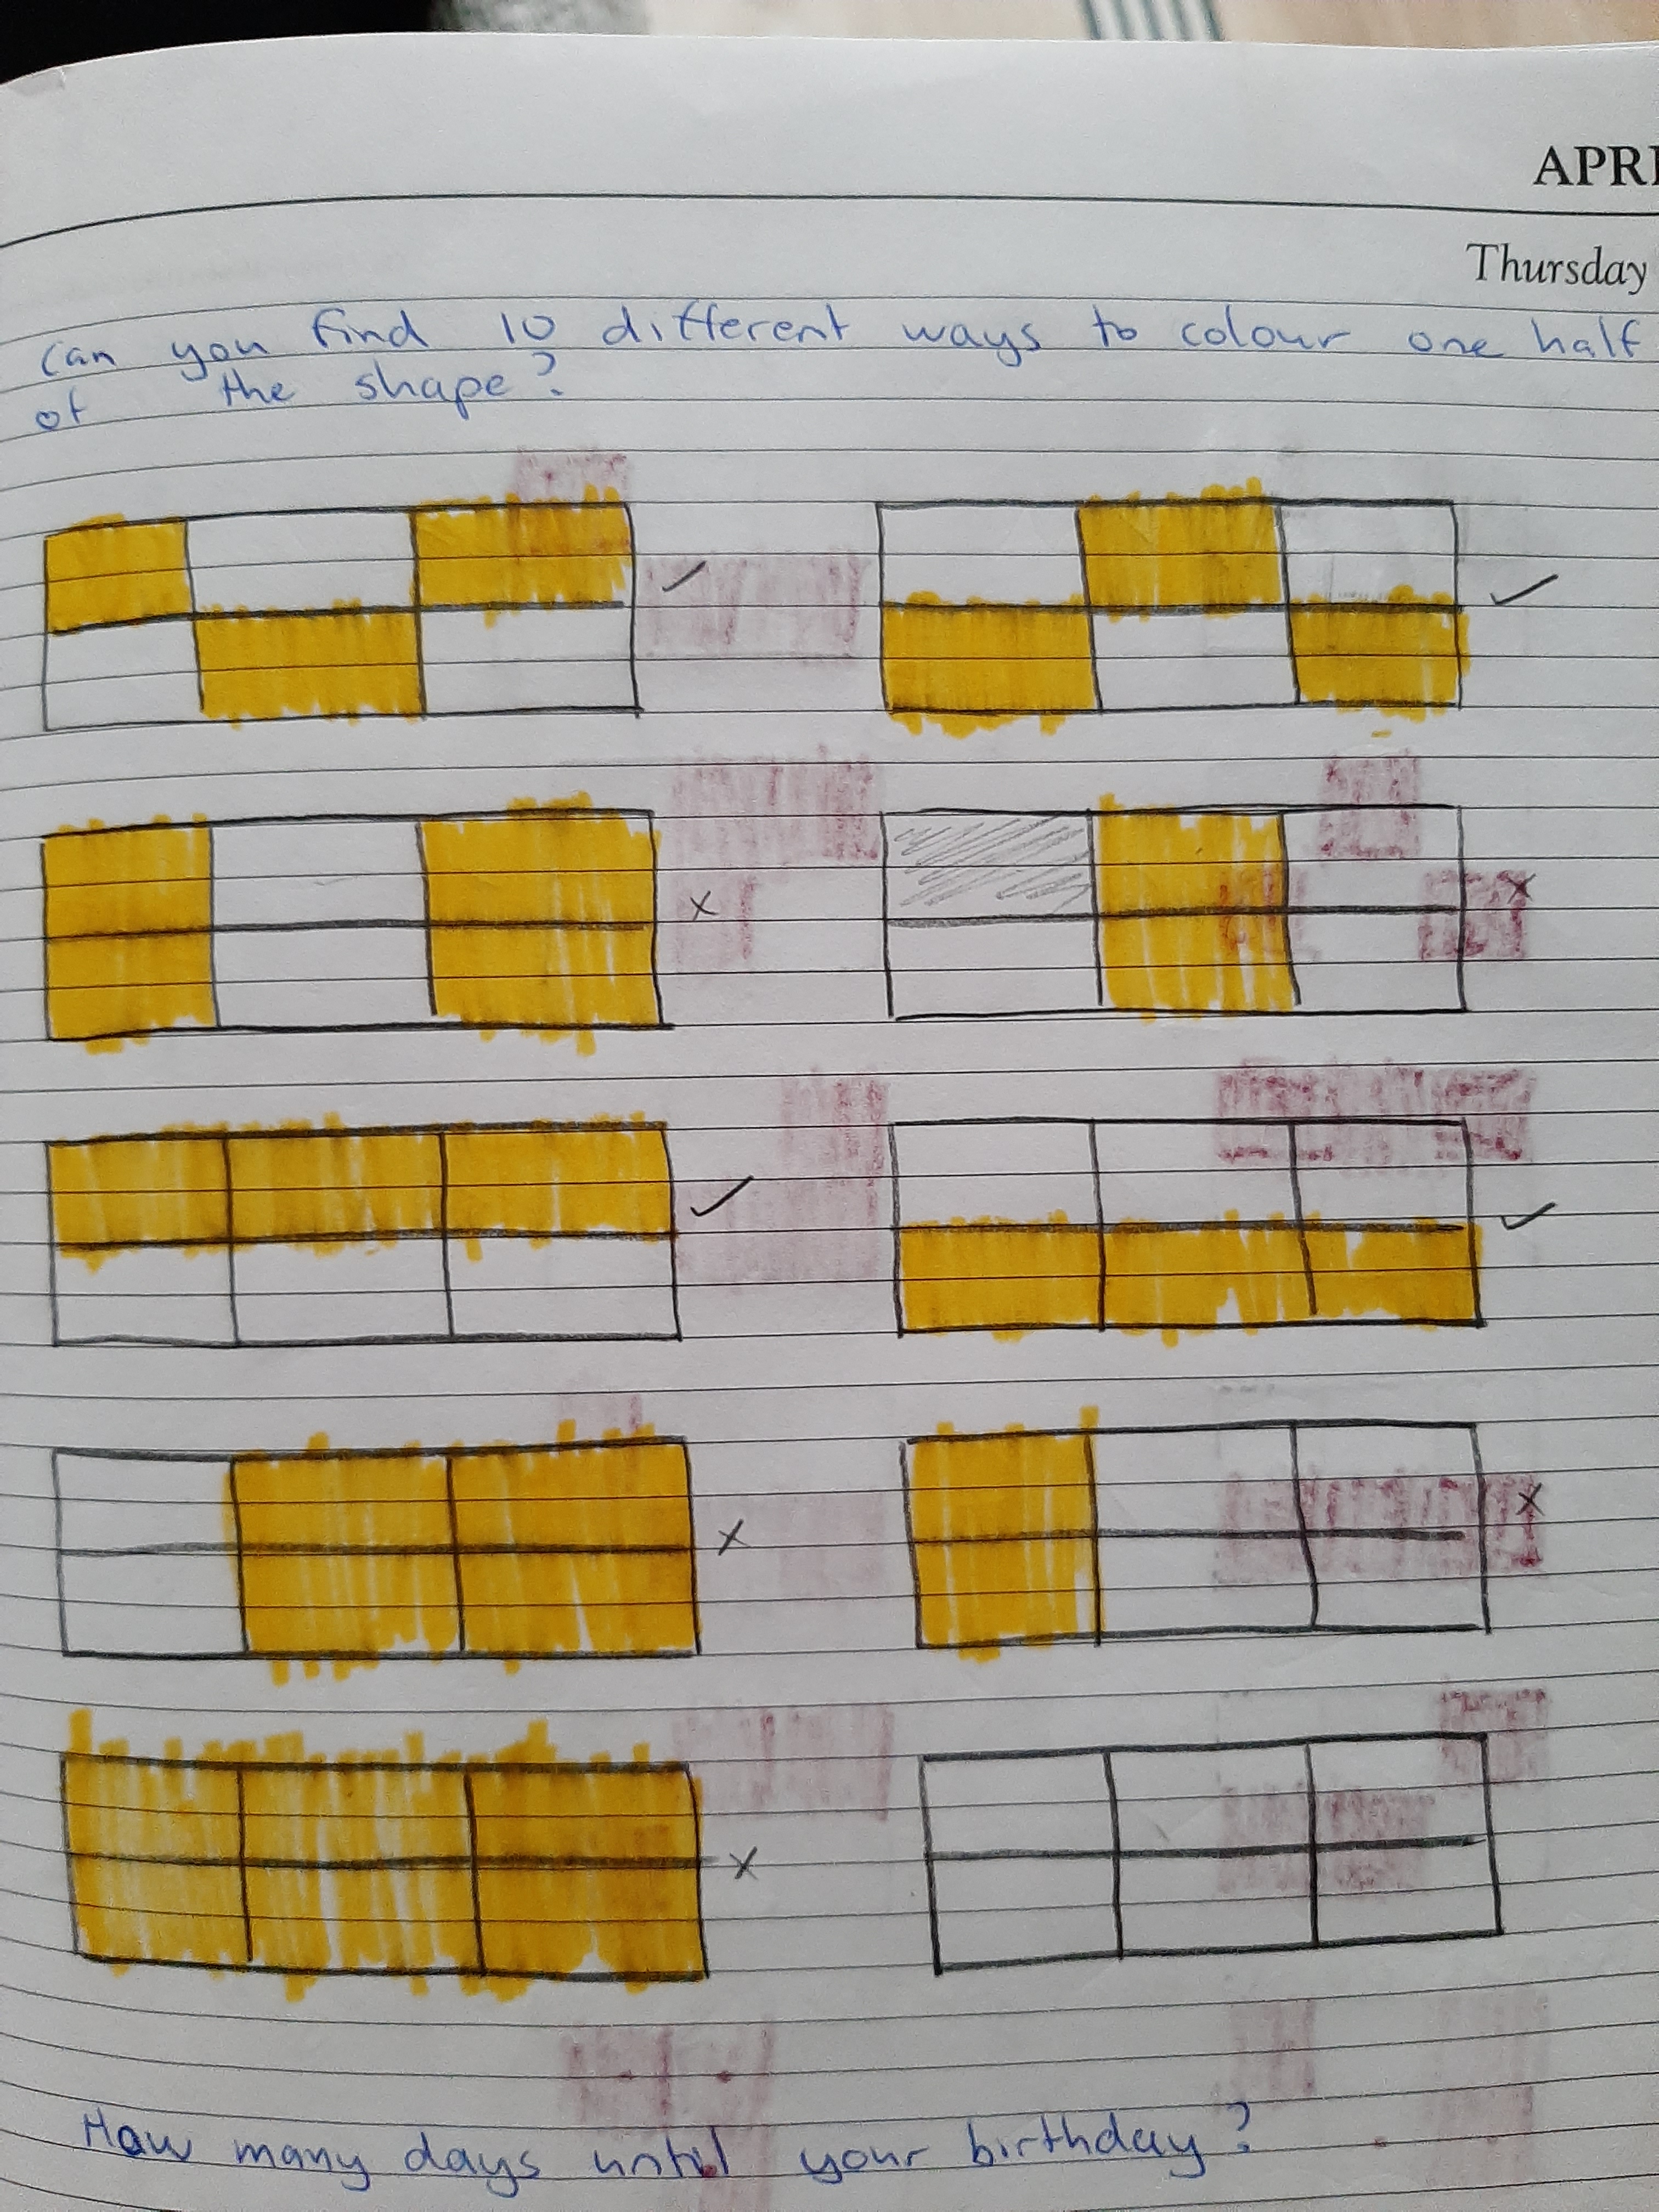 APRI
Thursday
Can you find 10 different ways to colour one half
of the shape?
How many days until your birthday?